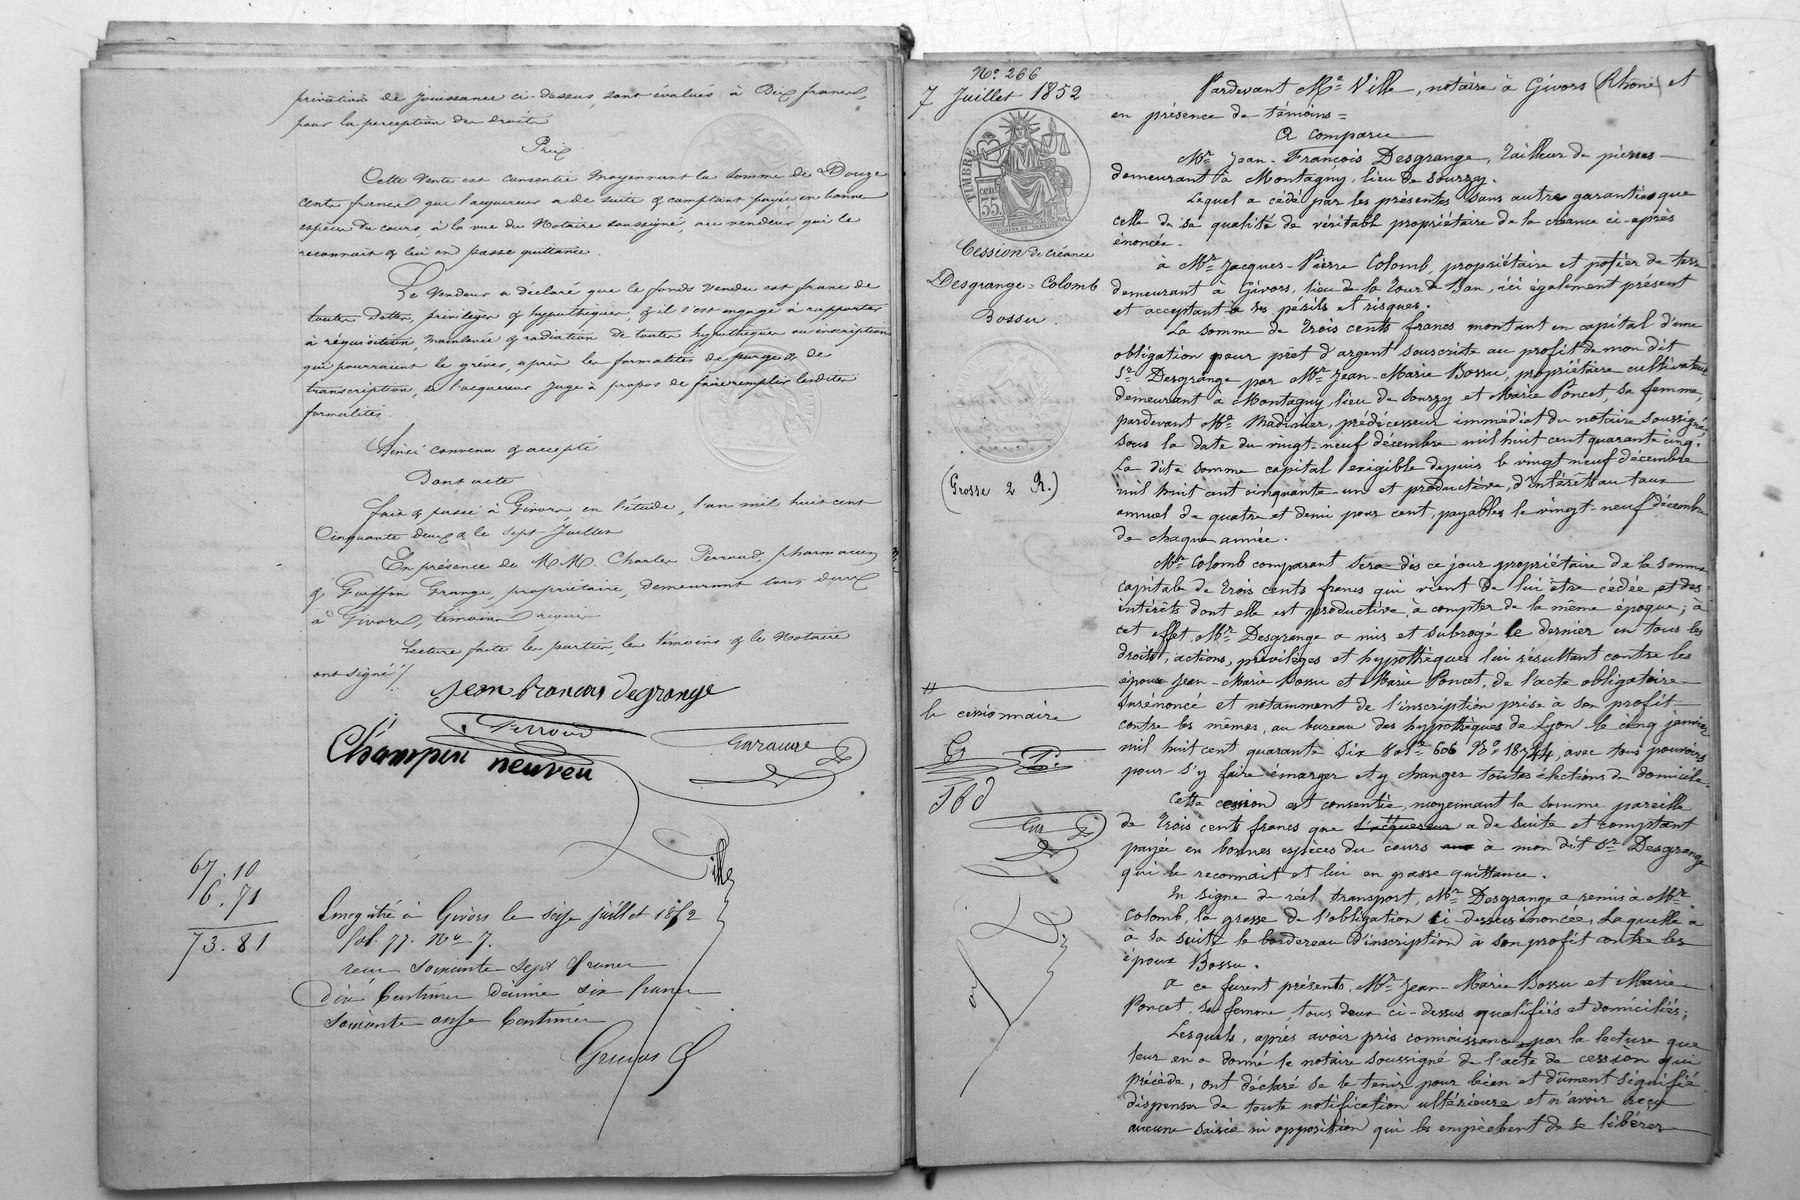 privation de jouissance ci-dessus, sont évalués à Dix francs,
pour la perception des droits
Prix
Cette Vente est consentie moyennant la somme de Douze
cents francs que l'acquereur a de suite & comptant payée en bonnes
espèces du cours, à la vue du Notaire soussigné, au vendeur qui le
reconnait & lui en passe quittance.
Le Vendeur a déclaré que le fonds vendu est franc de
toutes dettes, privilèges & hypothèques, & il s'est engagé à rapporter
à réquisition, mainlevée & radiation de toutes hypothèques ou inscriptions
qui pourraient le gréver, après les formalités de purge & de
transcription, si l'acquereur juge à propos de faire remplir lesdites
formalités.
Ainsi convenu & accepté
Dont acte
fait & passé à Givors en l'étude, l'an mil huit cent
Cinquante deux & le sept Juillet
En présence de M.M. Charles Perroud pharmacien
& Goiffon Grange, propriétaire, demeurant tous deux
à Givors, témoins requis
Lecture faite les parties, les témoins & le Notaire
ont signé
Jean francois degrange
Perroud
Champin neuveu
Ville
67. 10
6. 71
73. 81
Enregistré à Givors le seize juillet 1852
fol. 77. No 7.
reçu soixante sept francs
dix Centimes décime six francs
soixante onze Centimes
No. 266
7 Juillet 1852
TIMBRE
cent
35
Cession de créance
Desgrange = Colomb
Bossu.
(Grosse 2 R.)
le cessionnaire
Pardevant Me Ville, notaire à Givors (Rhône) et
en présence de témoins =
A Comparu
Mr. Jean-François Desgrange, Tailleur de pierres
demeurant à Montagny, lieu de Sourzy.
Lequel a cédé par les présentes sans autre garantie que
celle de sa qualité de véritable propriétaire de la créance ci-après
énoncée.
à Mr. Jacques-Pierre Colomb, propriétaire et potier de terre
demeurant à Givors, lieu de la Tour de Ban, ici également présent
et acceptant à ses périls et risques.
La somme de trois cents francs montant en capital d'une
obligation pour prêt d'argent souscrite au profit de mon dit
Sr. Desgrange par Mr. Jean-Marie Bossu, propriétaire cultivateur
demeurant à Montagny, lieu de Sourzy et Marie Poncet, sa femme,
pardevant Me Madinier, prédécesseur immédiat du notaire soussigné,
sous la date du vingt-neuf décembre mil huit cent quarante cinq.
La dite somme capital exigible depuis le vingt neuf décembre
mil huit cent cinquante-un et productive d'intérêts au taux
annuel de quatre et demi pour cent, payables le vingt-neuf décembre
de chaque année.
Mr. Colomb comparant sera dès ce jour propriétaire de la somme
capitale de trois cents francs qui vient de lui être cédée, et des
intérêts dont elle est productive, à compter de la même époque; à
cet effet, Mr. Desgrange a mis et subrogé le dernier en tous les
droits, actions, privilèges et hypothèques lui résultant contre les
époux Jean-Marie Bossu et Marie Poncet, de l'acte obligatoire
susénoncé et notamment de l'inscription prise à son profit
contre les mêmes, au bureau des hypothèques de Lyon le cinq janvier
mil huit cent quarante six Vol. 606 No. 18744, avec tous pouvoirs
pour s'y faire émarger et y changer toutes élections de domicile.
Cette cession est consentie, moyennant la somme pareille
de trois cents francs que l'acquereur a de suite et comptant
payée en bonnes espèces du cours aux à mon dit Sr. Desgrange
qui le reconnait et lui en passe quittance.
En signe de réel transport, Mr. Desgrange a remis à Mr.
Colomb, la grosse de l'obligation ci-dessus énoncée, laquelle a
à sa suite le bordereau d'inscription à son profit contre les
époux Bossu.
A ce furent présents, Mr. Jean-Marie Bossu et Marie
Poncet, sa femme, tous deux ci-dessus qualifiés et domiciliés;
Lesquels, après avoir pris connaissance par la lecture que
leur en a donné le notaire soussigné de l'acte de cession qui
précède, ont déclaré se le tenir pour bien et dûment signifié
dispenser de toute notification ultérieure et n'avoir reçu
aucune saisie ni opposition qui les empêchent de se libérer